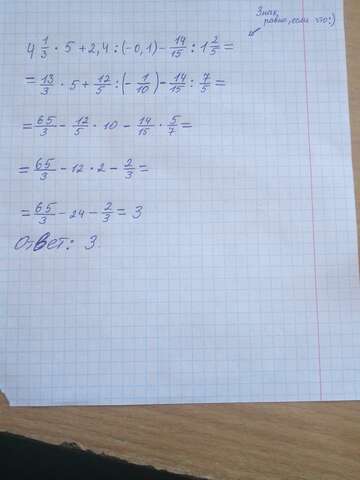 Знак
равно, если что:)
4 1/3 · 5 + 2,4 : (-0,1) - 14/15 : 1 2/5 =
= 13/3 · 5 + 12/5 : (- 1/10) - 14/15 : 7/5 =
= 65/3 - 12/5 · 10 - 14/15 · 5/7 =
= 65/3 - 12 · 2 - 2/3 =
= 65/3 - 24 - 2/3 = 3
Ответ: 3.